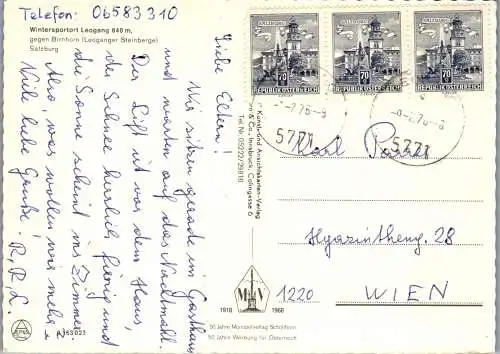 Telefon: 06583310
Wintersportort Leogang 840 m,
gegen Birnhorn (Leoganger Steinberge)
Salzburg
Liebe Eltern!
Wir sitzen gerade im Gasthaus
und warten auf das Nachtmahl.
Der Lift ist vor dem Haus,
der Schnee herrlich firnig und
die Sonne scheint ins Zimmer
Also, was wollen wir mehr!
Viele liebe Grüße.
R.P.L.
SALZBURG
70
REPUBLIK ÖSTERREICH
SALZBURG
70
REPUBLIK ÖSTERREICH
SALZBURG
70
REPUBLIK ÖSTERREICH
5771
5771
Kunst- und Ansichtskarten-Verlag
& Co., Innsbruck, Colingasse 6
Tel. Nr. 05222/29818
Karl
Hyazintheng. 28
1220 WIEN
M V
1918 1968
50 Jahre Mundpelverlag Schöllhorn
50 Jahre Werbung für Österreich
63023